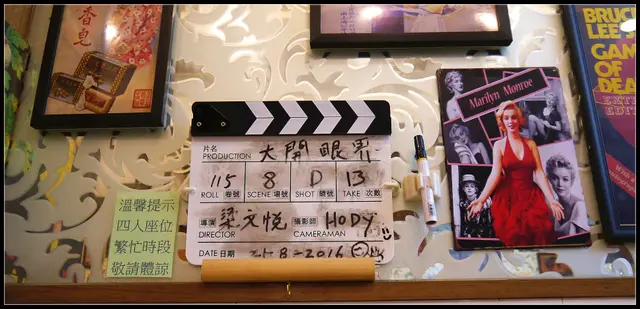 香
皂
BRUCE
LEE'S
GAME
OF
DEATH
Marilyn Monroe
片名
PRODUCTION 大開眼界
115 8 D 13
ROLL 卷號 SCENE 場號 SHOT 鏡號 TAKE 次數
導演 梁文悅 攝影師 HODY
DIRECTOR CAMERAMAN
DATE 日期 8-2016
溫馨提示
四人座位
繁忙時段
敬請體諒